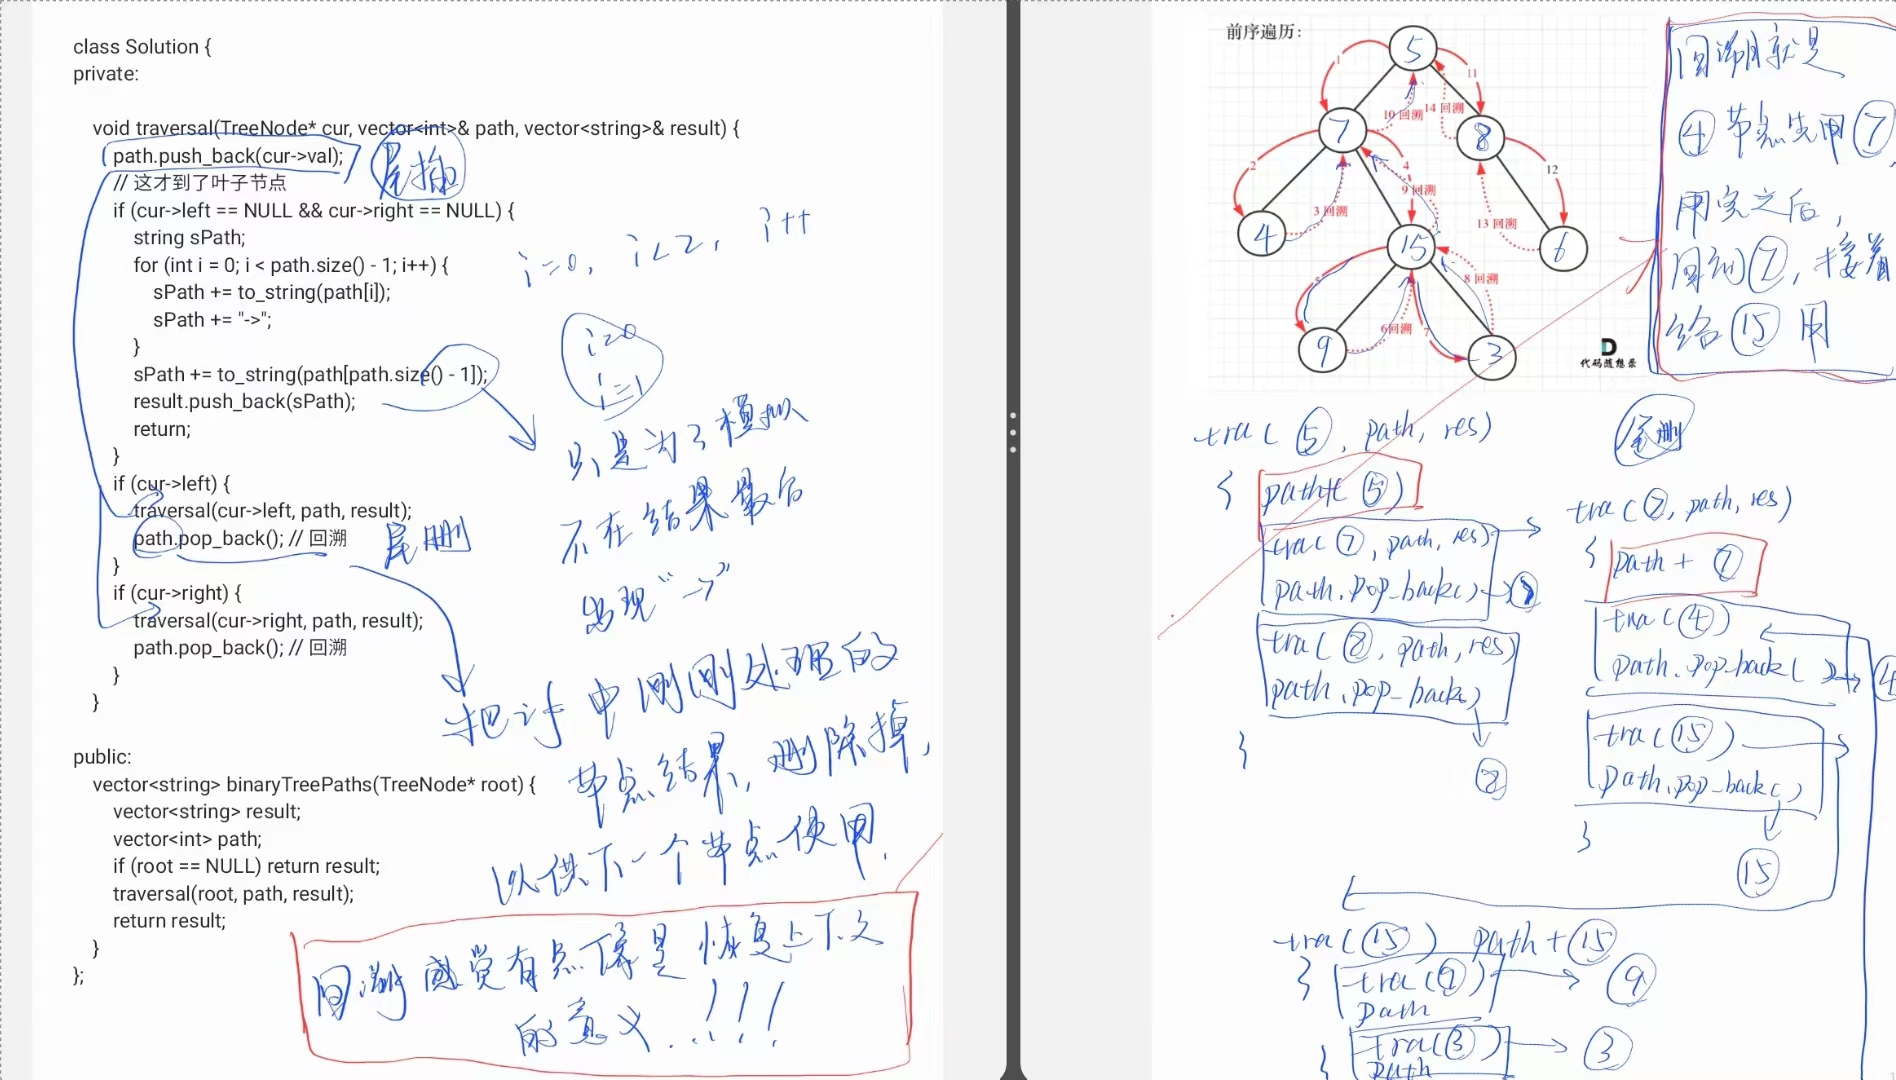 class Solution {
private:
void traversal(TreeNode* cur, vector<int>& path, vector<string>& result) {
path.push_back(cur->val);
尾插
// 这才到了叶子节点
if (cur->left == NULL && cur->right == NULL) {
string sPath;
for (int i = 0; i < path.size() - 1; i++) {
sPath += to_string(path[i]);
sPath += "->";
}
sPath += to_string(path[path.size() - 1]);
result.push_back(sPath);
return;
}
if (cur->left) {
traversal(cur->left, path, result);
path.pop_back(); // 回溯
}
if (cur->right) {
traversal(cur->right, path, result);
path.pop_back(); // 回溯
}
}
public:
vector<string> binaryTreePaths(TreeNode* root) {
vector<string> result;
vector<int> path;
if (root == NULL) return result;
traversal(root, path, result);
return result;
}
};
i=0, i<2, i++
i=0
i=1
只是为了模拟
不在结果最后
出现“->”
尾删
把 中刚刚处理的
节点结果, 删除掉,
以供下一个节点使用.
回溯感觉有点像是恢复上下文
的意义..!!!
前序遍历:
5
1
11
10回溯
14回溯
7
8
2
4
12
9回溯
3回溯
13回溯
4
15
6
5
8回溯
6回溯
7
9
3
代码随想录
回溯就是
④节点先用⑦,
用完之后,
回到⑦, 接着
给⑮用
tra(⑤, path, res)
{ path+(⑤)
tra(⑦, path, res)
path.pop_back()
tra(⑧, path, res)
path.pop_back()
⑧
}
尾删
tra(⑦, path, res)
{ path + ⑦
tra(④)
path.pop_back()
④
tra(⑮)
path.pop_back()
}
⑮
tra(⑮) path+⑮
{ tra(⑨) ⑨
path
{ tra(③) ③
path